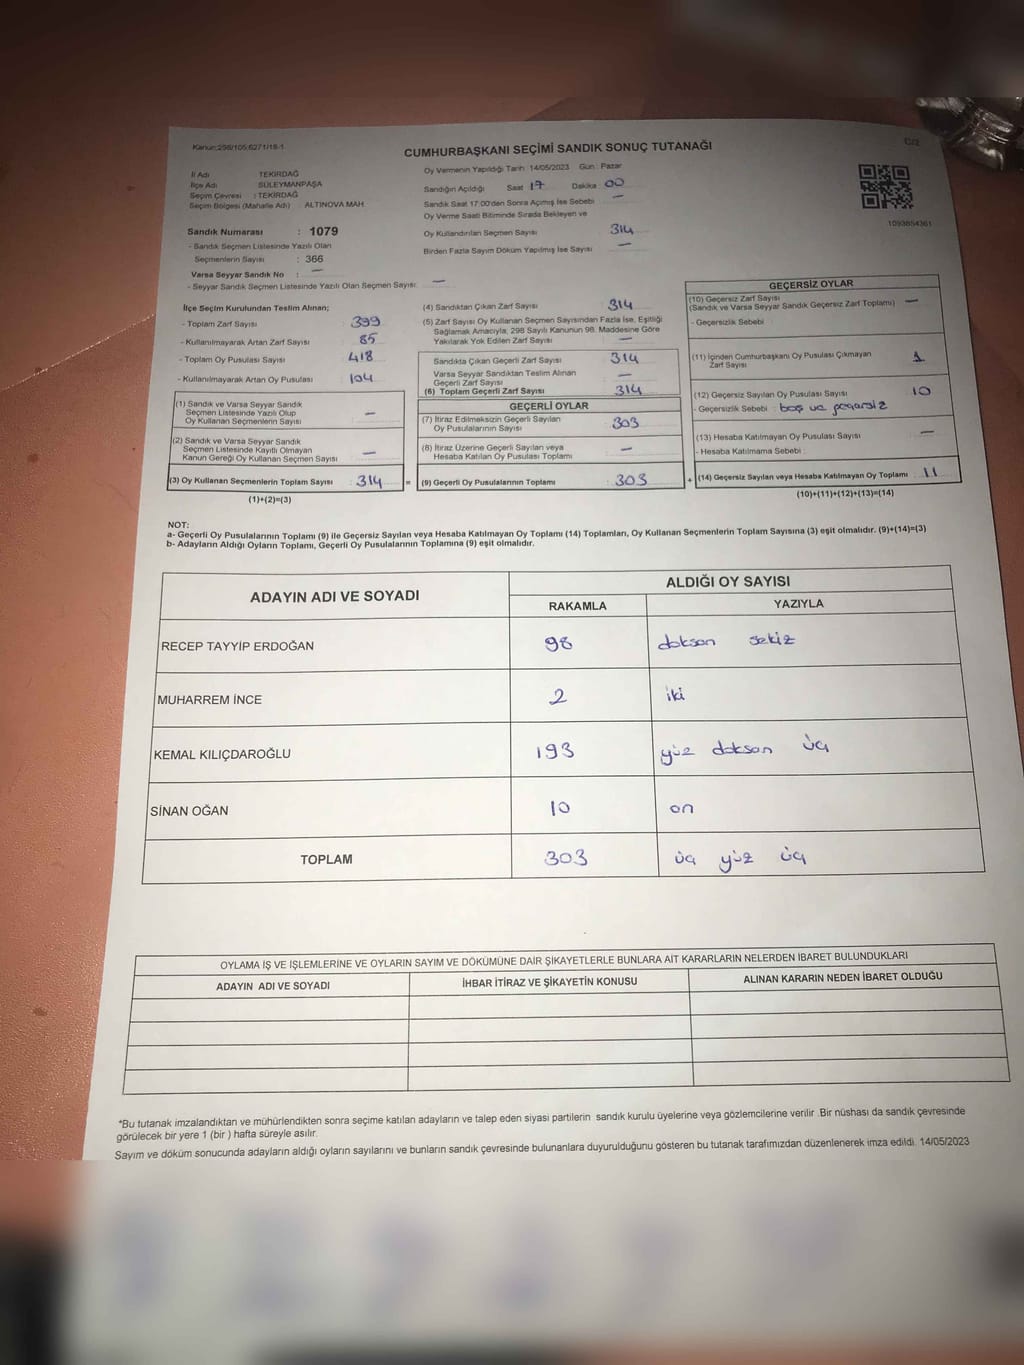 Kanun:298/105;6271/18-1
C/2
CUMHURBAŞKANI SEÇİMİ SANDIK SONUÇ TUTANAĞI
İl Adı TEKİRDAĞ
İlçe Adı SÜLEYMANPAŞA
Seçim Çevresi : TEKİRDAĞ
Seçim Bölgesi (Mahalle Adı) : ALTINOVA MAH
Sandık Numarası : 1079
- Sandık Seçmen Listesinde Yazılı Olan
Seçmenlerin Sayısı : 366
Varsa Seyyar Sandık No : —
- Seyyar Sandık Seçmen Listesinde Yazılı Olan Seçmen Sayısı: —
Oy Vermenin Yapıldığı Tarih 14/05/2023 Gün : Pazar
Sandığın Açıldığı Saat 17 Dakika 00
Sandık Saat 17:00'den Sonra Açımış İse Sebebi —
Oy Verme Saati Bitiminde Sırada Bekleyen ve
Oy Kullandırılan Seçmen Sayısı 314
Birden Fazla Sayım Döküm Yapılmış İse Sayısı —
1093854361
İlçe Seçim Kurulundan Teslim Alınan;
- Toplam Zarf Sayısı 399
- Kullanılmayarak Artan Zarf Sayısı 85
- Toplam Oy Pusulası Sayısı 418
- Kullanılmayarak Artan Oy Pusulası 104
(1) Sandık ve Varsa Seyyar Sandık
Seçmen Listesinde Yazılı Olup
Oy Kullanan Seçmen Sayısı —
(2) Sandık ve Varsa Seyyar Sandık
Seçmen Listesinde Kayıtlı Olmayan
Kanun Gereği Oy Kullanan Seçmen Sayısı —
(3) Oy Kullanan Seçmenlerin Toplam Sayısı : 314 =
(1)+(2)=(3)
(4) Sandıktan Çıkan Zarf Sayısı 314
(5) Zarf Sayısı Oy Kullanan Seçmen Sayısından Fazla İse, Eşitliği
Sağlamak Amacıyla, 298 Sayılı Kanunun 98. Maddesine Göre
Yakılarak Yok Edilen Zarf Sayısı —
Sandıkta Çıkan Geçerli Zarf Sayısı 314
Varsa Seyyar Sandıktan Teslim Alınan
Geçerli Zarf Sayısı —
(6) Toplam Geçerli Zarf Sayısı 314
GEÇERLİ OYLAR
(7) İtiraz Edilmeksizin Geçerli Sayılan
Oy Pusulalarının Sayısı 303
(8) İtiraz Üzerine Geçerli Sayılan veya
Hesaba Katılan Oy Pusulası Toplamı —
(9) Geçerli Oy Pusulalarının Toplamı : 303 +
GEÇERSİZ OYLAR
(10) Geçersiz Zarf Sayısı
(Sandık ve Varsa Seyyar Sandık Geçersiz Zarf Toplamı) —
- Geçersizlik Sebebi
(11) İçinden Cumhurbaşkanı Oy Pusulası Çıkmayan
Zarf Sayısı 1
(12) Geçersiz Sayılan Oy Pusulası Sayısı 10
- Geçersizlik Sebebi : boş ve
(13) Hesaba Katılmayan Oy Pusulası Sayısı —
- Hesaba Katılmama Sebebi :
(14) Geçersiz Sayılan veya Hesaba Katılmayan Oy Toplamı : 11
(10)+(11)+(12)+(13)=(14)
NOT:
a- Geçerli Oy Pusulalarının Toplamı (9) ile Geçersiz Sayılan veya Hesaba Katılmayan Oy Toplamı (14) Toplamları, Oy Kullanan Seçmenlerin Toplam Sayısına (3) eşit olmalıdır. (9)+(14)=(3)
b- Adayların Aldığı Oyların Toplamı, Geçerli Oy Pusulalarının Toplamına (9) eşit olmalıdır.
ADAYIN ADI VE SOYADI
ALDIĞI OY SAYISI
RAKAMLA YAZIYLA
RECEP TAYYİP ERDOĞAN 98 doksan sekiz
MUHARREM İNCE 2 iki
KEMAL KILIÇDAROĞLU 193 yüz doksan üç
SİNAN OĞAN 10 on
TOPLAM 303 üç yüz üç
OYLAMA İŞ VE İŞLEMLERİNE VE OYLARIN SAYIM VE DÖKÜMÜNE DAİR ŞİKAYETLERLE BUNLARA AİT KARARLARIN NELERDEN İBARET BULUNDUKLARI
ADAYIN ADI VE SOYADI İHBAR İTİRAZ VE ŞİKAYETİN KONUSU ALINAN KARARIN NEDEN İBARET OLDUĞU
*Bu tutanak imzalandıktan ve mühürlendikten sonra seçime katılan adayların ve talep eden siyasi partilerin sandık kurulu üyelerine veya gözlemcilerine verilir .Bir nüshası da sandık çevresinde
görülecek bir yere 1 (bir ) hafta süreyle asılır.
Sayım ve döküm sonucunda adayların aldığı oyların sayılarını ve bunların sandık çevresinde bulunanlara duyurulduğunu gösteren bu tutanak tarafımızdan düzenlenerek imza edildi. 14/05/2023